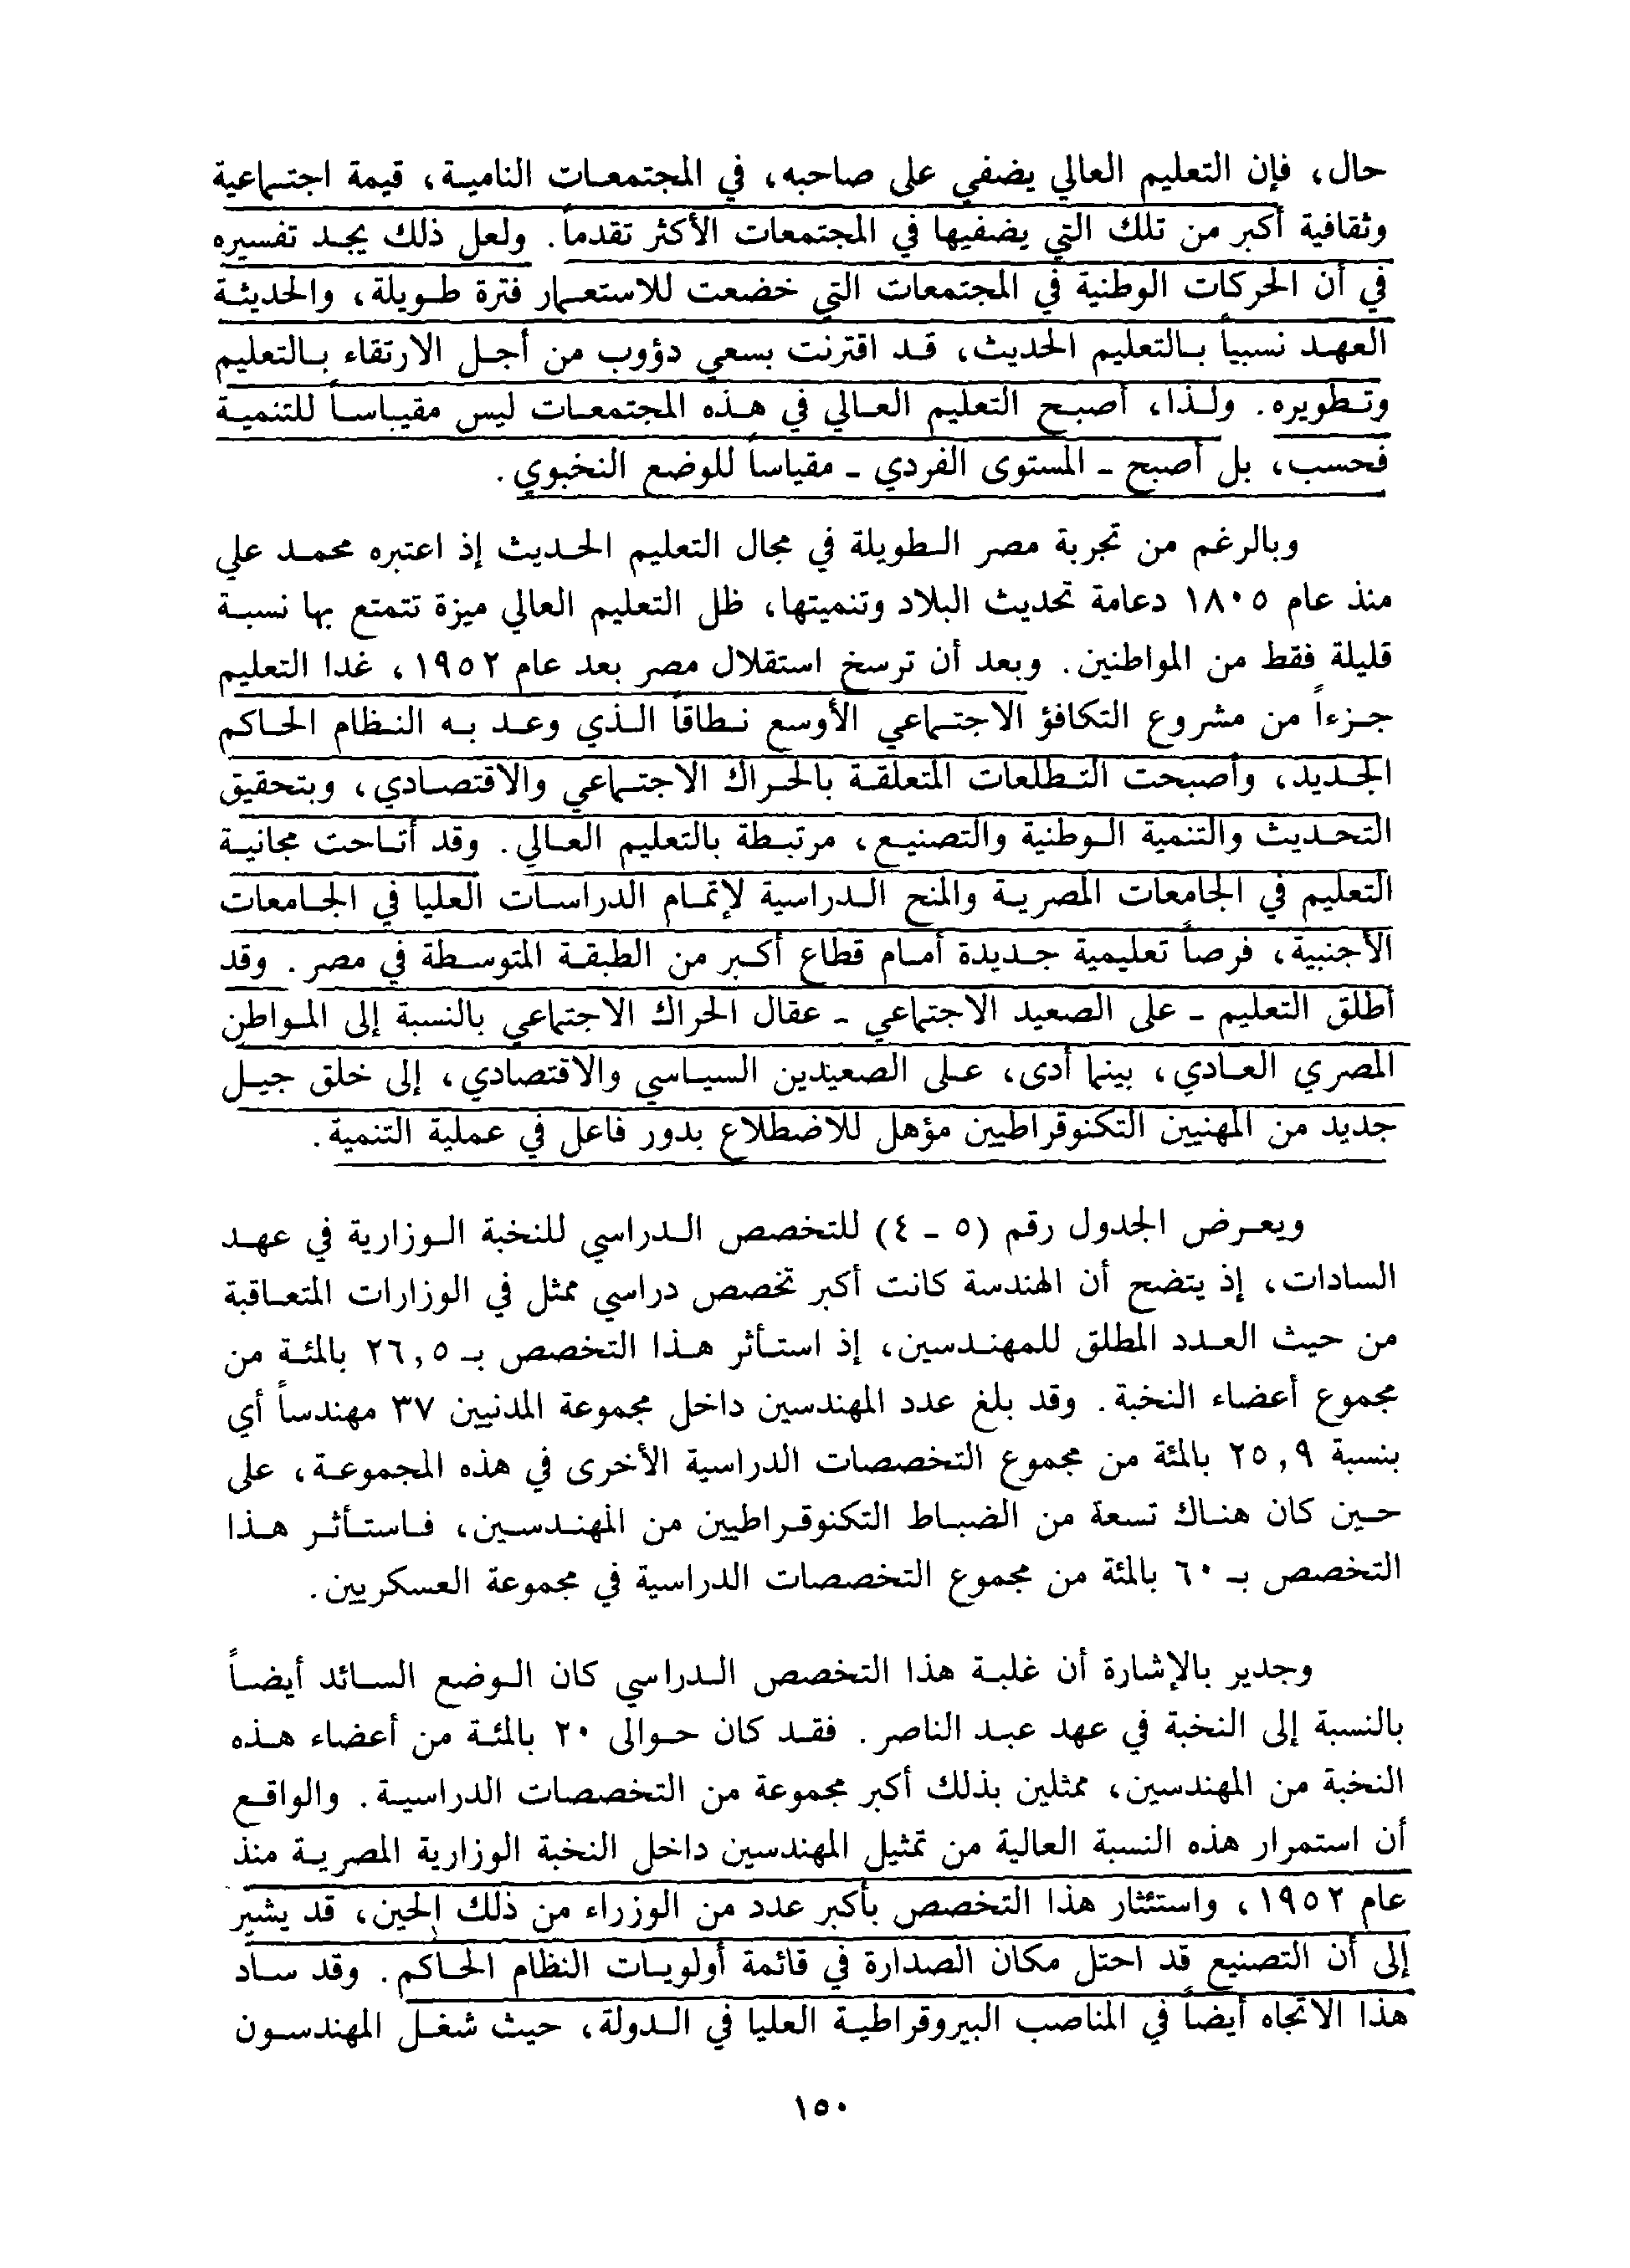 حال، فإن التعليم العالي يضفي على صاحبه، في المجتمعات النامية، قيمة اجتماعية
وثقافية أكبر من تلك التي يضفيها في المجتمعات الأكثر تقدماً. ولعل ذلك يجد تفسيره
في أن الحركات الوطنية في المجتمعات التي خضعت للاستعمار فترة طويلة، والحديثة
العهد نسبياً بالتعليم الحديث، قد اقترنت بسعي دؤوب من أجل الارتقاء بالتعليم
وتطويره. ولذا، أصبح التعليم العالي في هذه المجتمعات ليس مقياساً للتنمية
فحسب، بل أصبح - المستوى الفردي - مقياساً للوضع النخبوي.
وبالرغم من تجربة مصر الطويلة في مجال التعليم الحديث إذ اعتبره محمد علي
منذ عام ١٨٠٥ دعامة تحديث البلاد وتنميتها، ظل التعليم العالي ميزة تتمتع بها نسبة
قليلة فقط من المواطنين. وبعد أن ترسخ استقلال مصر بعد عام ١٩٥٢، غدا التعليم
جزءاً من مشروع التكافؤ الاجتماعي الأوسع نطاقاً الذي وعد به النظام الحاكم
الجديد، وأصبحت التطلعات المتعلقة بالحراك الاجتماعي والاقتصادي، وبتحقيق
التحديث والتنمية الوطنية والتصنيع، مرتبطة بالتعليم العالي. وقد أتاحت مجانية
التعليم في الجامعات المصرية والمنح الدراسية لإتمام الدراسات العليا في الجامعات
الأجنبية، فرصاً تعليمية جديدة أمام قطاع أكبر من الطبقة المتوسطة في مصر. وقد
أطلق التعليم - على الصعيد الاجتماعي - عقال الحراك الاجتماعي بالنسبة إلى المواطن
المصري العادي، بينما أدى، على الصعيدين السياسي والاقتصادي، إلى خلق جيل
جديد من المهنيين التكنوقراطيين مؤهل للاضطلاع بدور فاعل في عملية التنمية.
ويعرض الجدول رقم (٥ - ٤) للتخصص الدراسي للنخبة الوزارية في عهد
السادات، إذ يتضح أن الهندسة كانت أكبر تخصص دراسي ممثل في الوزارات المتعاقبة
من حيث العدد المطلق للمهندسين، إذ استأثر هذا التخصص بـ ٢٦,٥ بالمئة من
مجموع أعضاء النخبة. وقد بلغ عدد المهندسين داخل مجموعة المدنيين ٣٧ مهندساً أي
بنسبة ٢٥,٩ بالمئة من مجموع التخصصات الدراسية الأخرى في هذه المجموعة، على
حين كان هناك تسعة من الضباط التكنوقراطيين من المهندسين، فاستأثر هذا
التخصص بـ ٦٠ بالمئة من مجموع التخصصات الدراسية في مجموعة العسكريين.
وجدير بالإشارة أن غلبة هذا التخصص الدراسي كان الوضع السائد أيضاً
بالنسبة إلى النخبة في عهد عبد الناصر. فقد كان حوالى ٢٠ بالمئة من أعضاء هذه
النخبة من المهندسين، ممثلين بذلك أكبر مجموعة من التخصصات الدراسية. والواقع
أن استمرار هذه النسبة العالية من تمثيل المهندسين داخل النخبة الوزارية المصرية منذ
عام ١٩٥٢، واستئثار هذا التخصص بأكبر عدد من الوزراء من ذلك الحين، قد يشير
إلى أن التصنيع قد احتل مكان الصدارة في قائمة أولويات النظام الحاكم. وقد ساد
هذا الاتجاه أيضاً في المناصب البيروقراطية العليا في الدولة، حيث شغل المهندسون
١٥٠